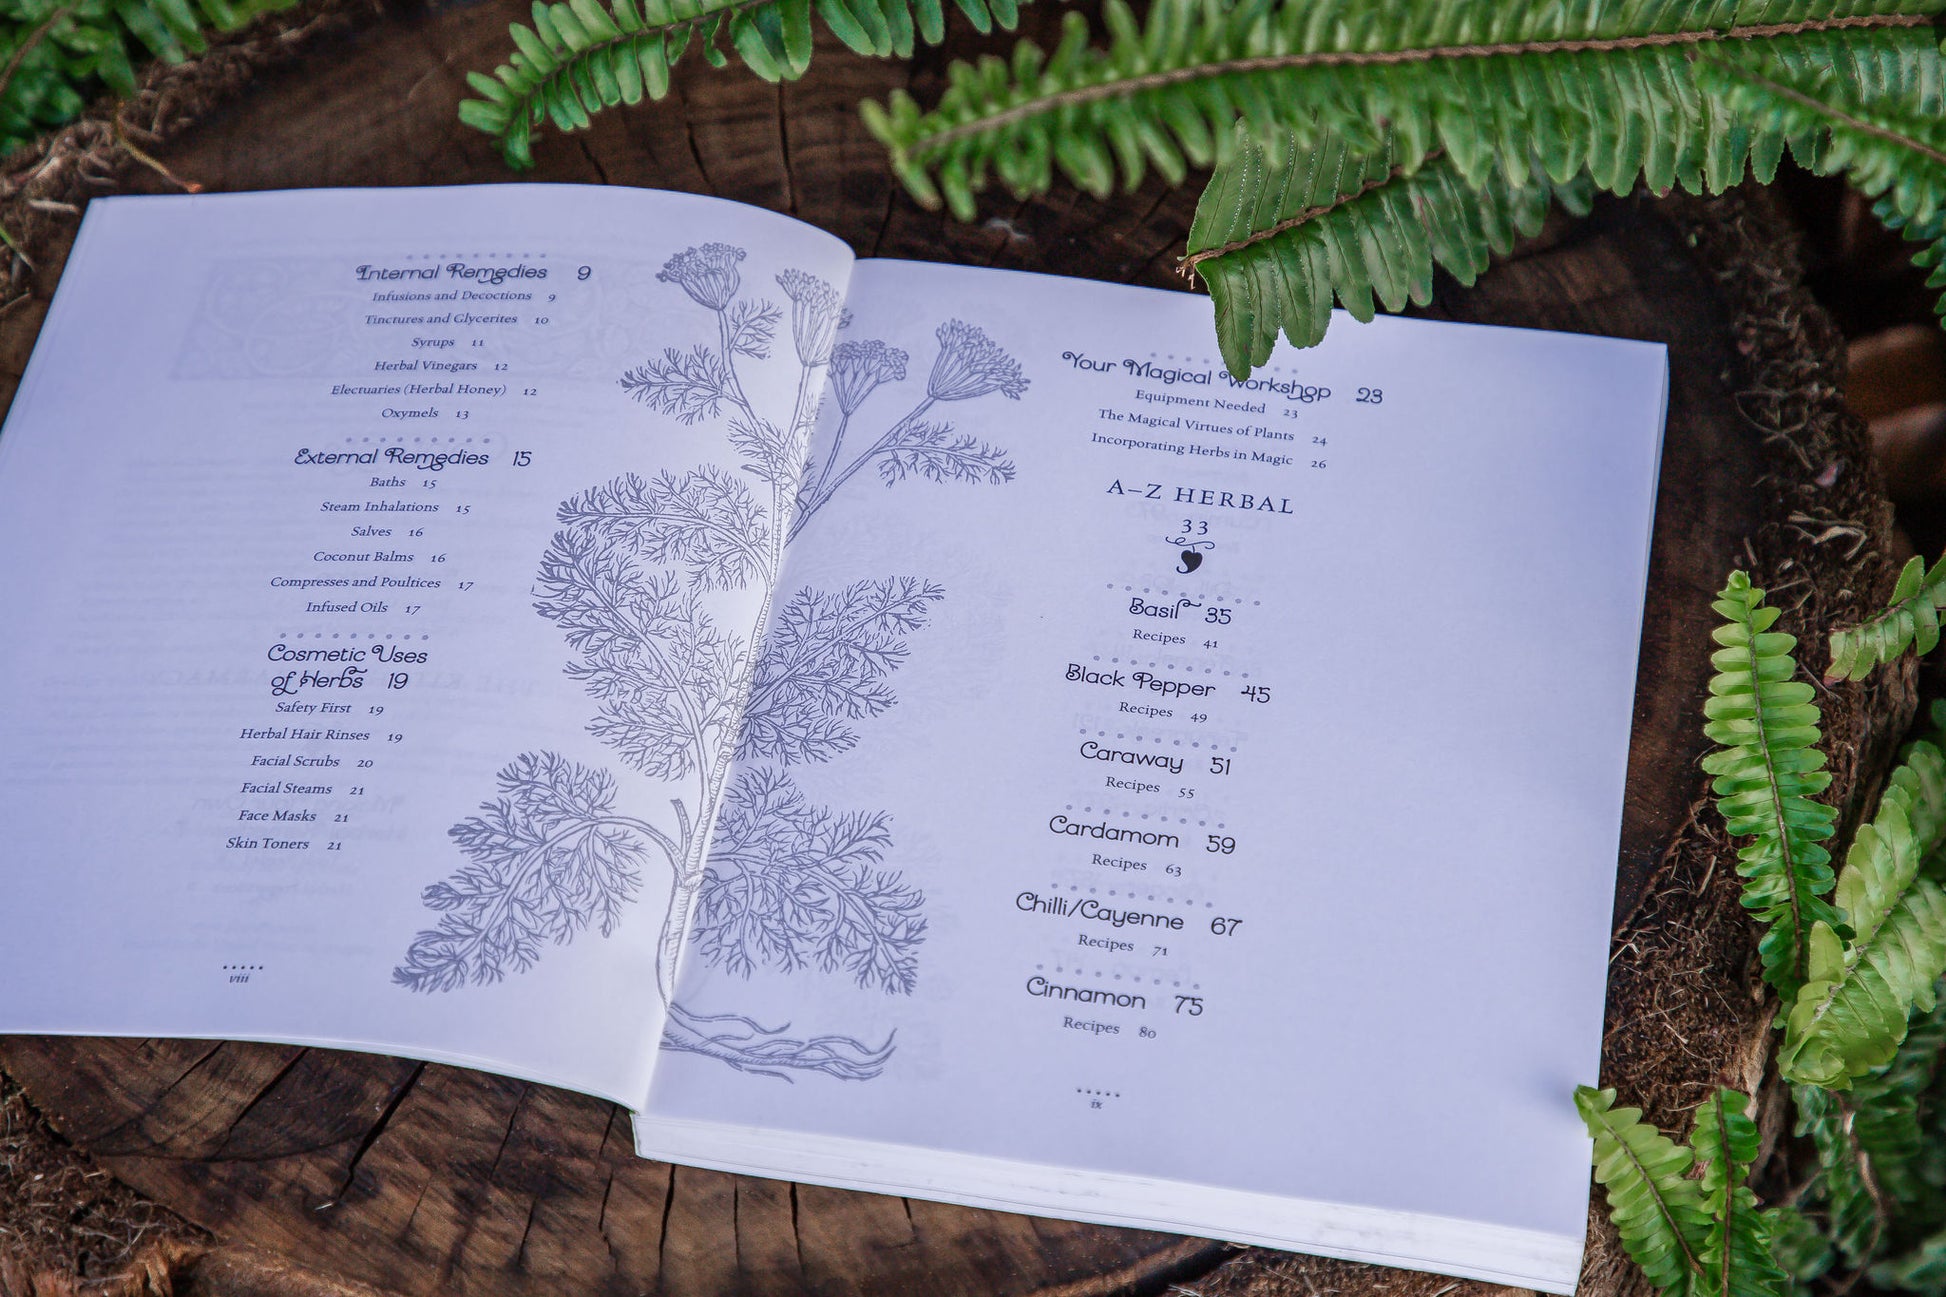 Internal Remedies 9
Infusions and Decoctions 9
Tinctures and Glycerites 10
Syrups 11
Herbal Vinegars 12
Electuaries (Herbal Honey) 12
Oxymels 13
External Remedies 15
Baths 15
Steam Inhalations 15
Salves 16
Coconut Balms 16
Compresses and Poultices 17
Infused Oils 17
Cosmetic Uses
of Herbs 19
Safety First 19
Herbal Hair Rinses 19
Facial Scrubs 20
Facial Steams 21
Face Masks 21
Skin Toners 21
viii
Your Magical Workshop 23
Equipment Needed 23
The Magical Virtues of Plants 24
Incorporating Herbs in Magic 26
A–Z HERBAL
33
Basil 35
Recipes 41
Black Pepper 45
Recipes 49
Caraway 51
Recipes 55
Cardamom 59
Recipes 63
Chilli/Cayenne 67
Recipes 71
Cinnamon 75
Recipes 80
ix